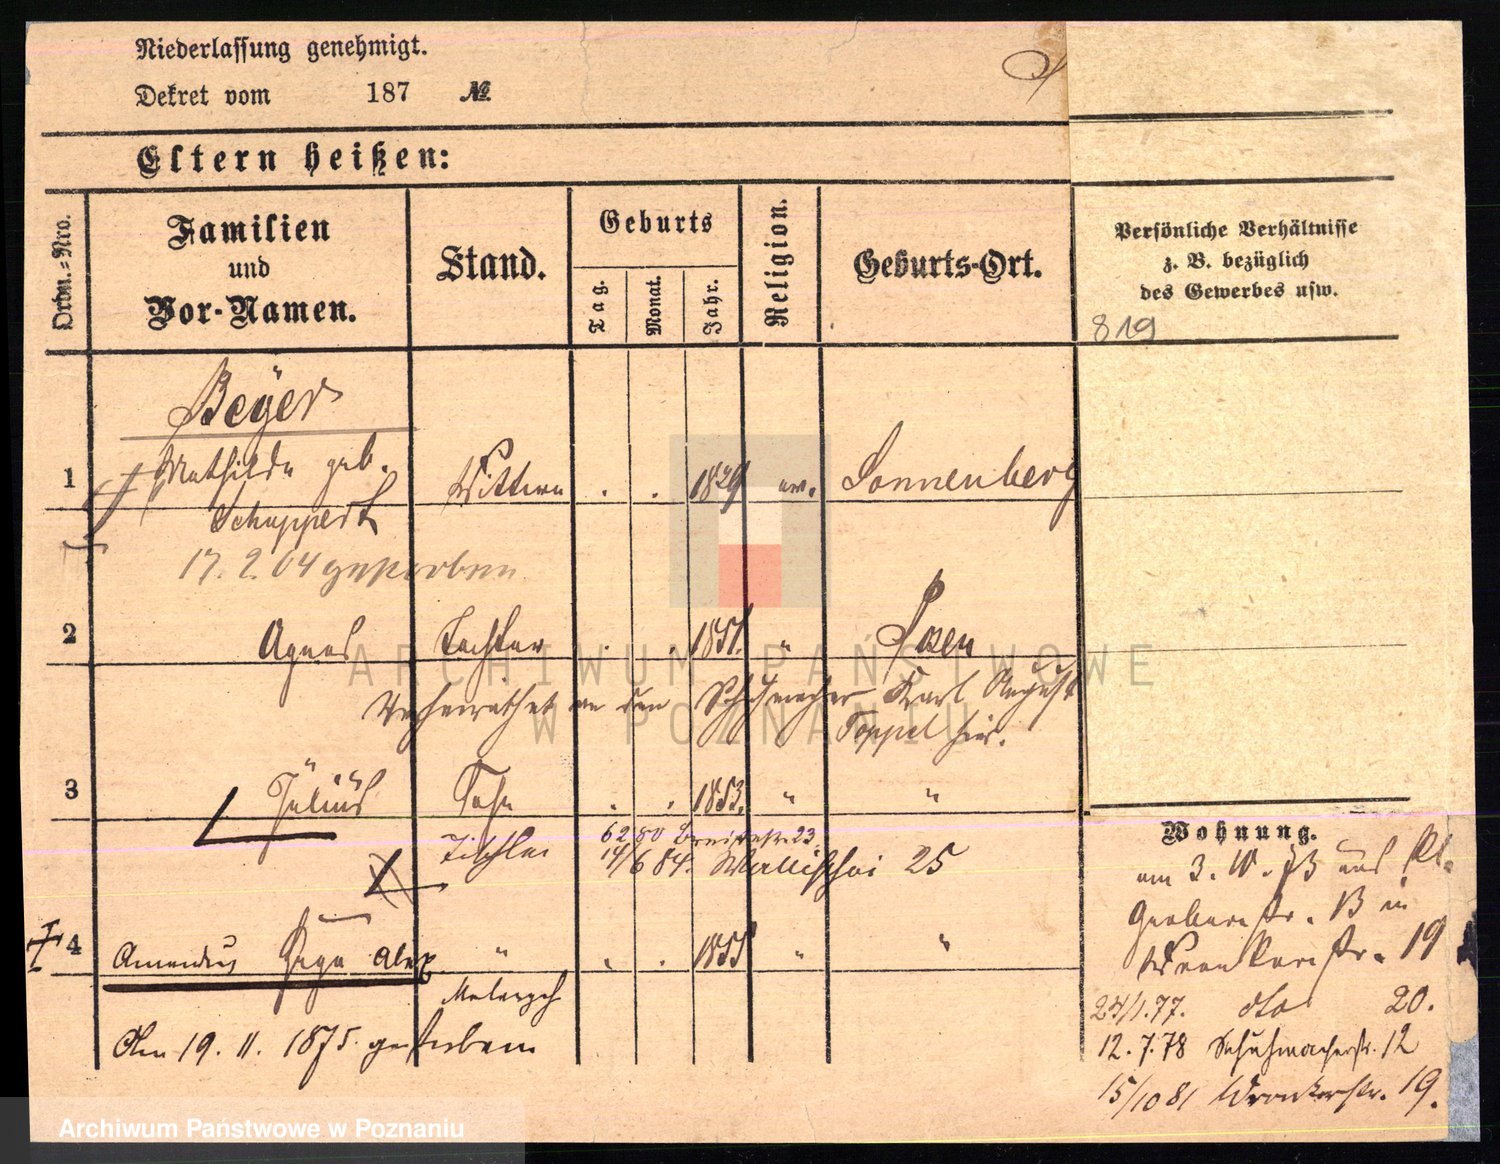 Niederlassung genehmigt.
Dekret vom 187 №
Eltern heißen:
Ordn.=Nro.
Familien
und
Vor-Namen.
Stand.
Geburts
Tag.
Monat.
Jahr.
Religion.
Geburts-Ort.
Persönliche Verhältnisse
z. B. bezüglich
des Gewerbes usw.
819
Beÿer
1 Mathilde geb. Wittwe . . 1829 ev. Sonnenberg
Schuppert
17.2.04 gestorben
2 Agnes Tochter . . 1851. " Posen
Verheirathet an den Schuhmacher Karl August
Toppel hier.
3 Julius Sohn . . 1853. " "
Tischler 6 2 80 Breitestr. 23.
14/6 84. Wallischei 25
4 Amandus Hugo Alex " . . 1855 " "
Am 19. 11. 1875 gestorben
Wohnung.
am 3. 10. 73 aus Kl.
Gerberstr. 13 in
Wronkerstr. 19
24/1.77. dto 20.
12.7.78 Schuhmacherstr. 12
15/10 81 Wronkerstr. 19.
ARCHIWUM PAŃSTWOWE
W POZNANIU
Archiwum Państwowe w Poznaniu